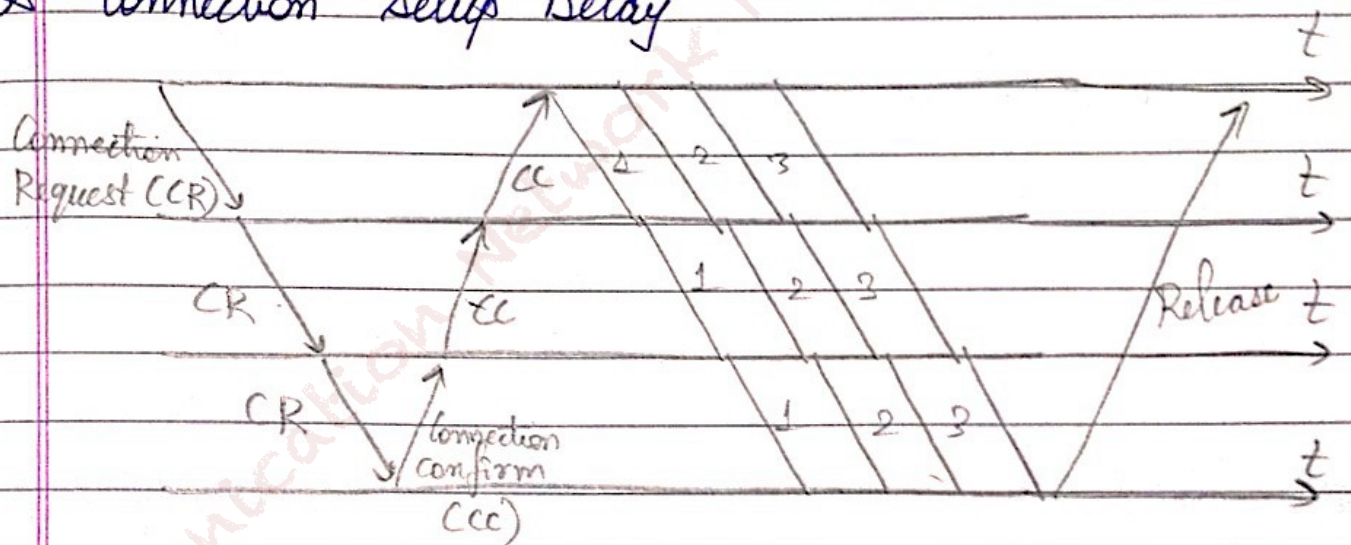 Connection Setup Delay
t
Connection
Request (CR)
CC 1 2 3 t
CR CC 1 2 3 Release t
CR Connection
confirm
(CC) 1 2 3 t
nication Network